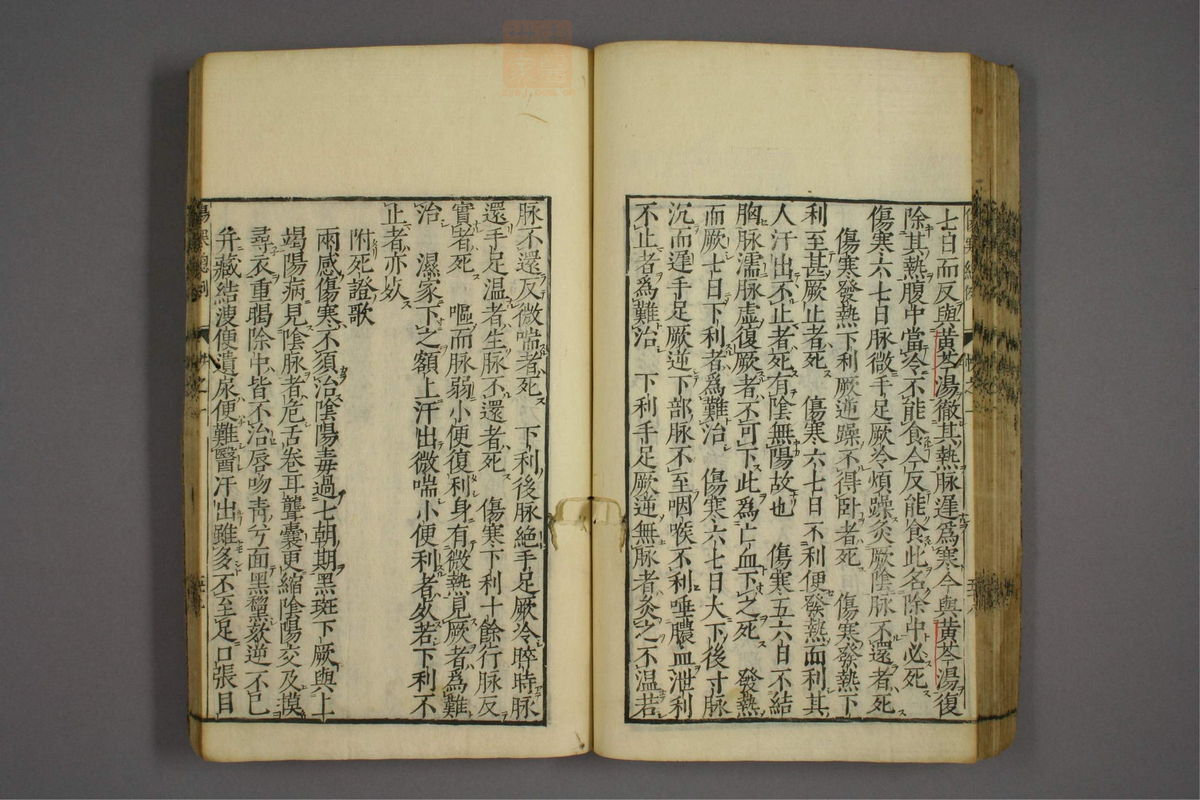 七日而反與黃芩湯徹其熱脉遲爲寒今與黃芩湯復
除其熱腹中當冷不能食今反能食此名除中必死
傷寒六七日脉微手足厥冷煩躁灸厥陰脉不還者死
傷寒發熱下利厥逆躁不得臥者死　傷寒發熱下
利至甚厥止者死　傷寒六七日不利便發熱而利其
人汗出不止者死有陰無陽故也　傷寒五六日不結
胸脉濡脉虛復厥者不可下此爲亡血下之死　發熱
而厥七日下利者爲難治　傷寒六七日大下後寸脉
沉而遲手足厥逆下部脉不至咽喉不利唾膿血泄利
不止者爲難治　下利手足厥逆無脉者灸之不温若
脉不還反微喘者死　下利後脉絶手足厥冷晬時脉
還手足温者生脉不還者死　傷寒下利十餘行脉反
實者死　嘔而脉弱小便復利身有微熱見厥者爲難
治　濕家下之額上汗出微喘小便利者死若下利不
止者亦死
附死證歌
兩感傷寒不須治陰陽毒過七朝期黑斑下厥與上
竭陽病見陰脉者危舌卷耳聾囊更縮陰陽交及摸
尋衣重暍除中皆不治唇吻靑兮面黑黧欬逆不已
并藏結溲便遺尿便難醫汗出雖多不至足口張目